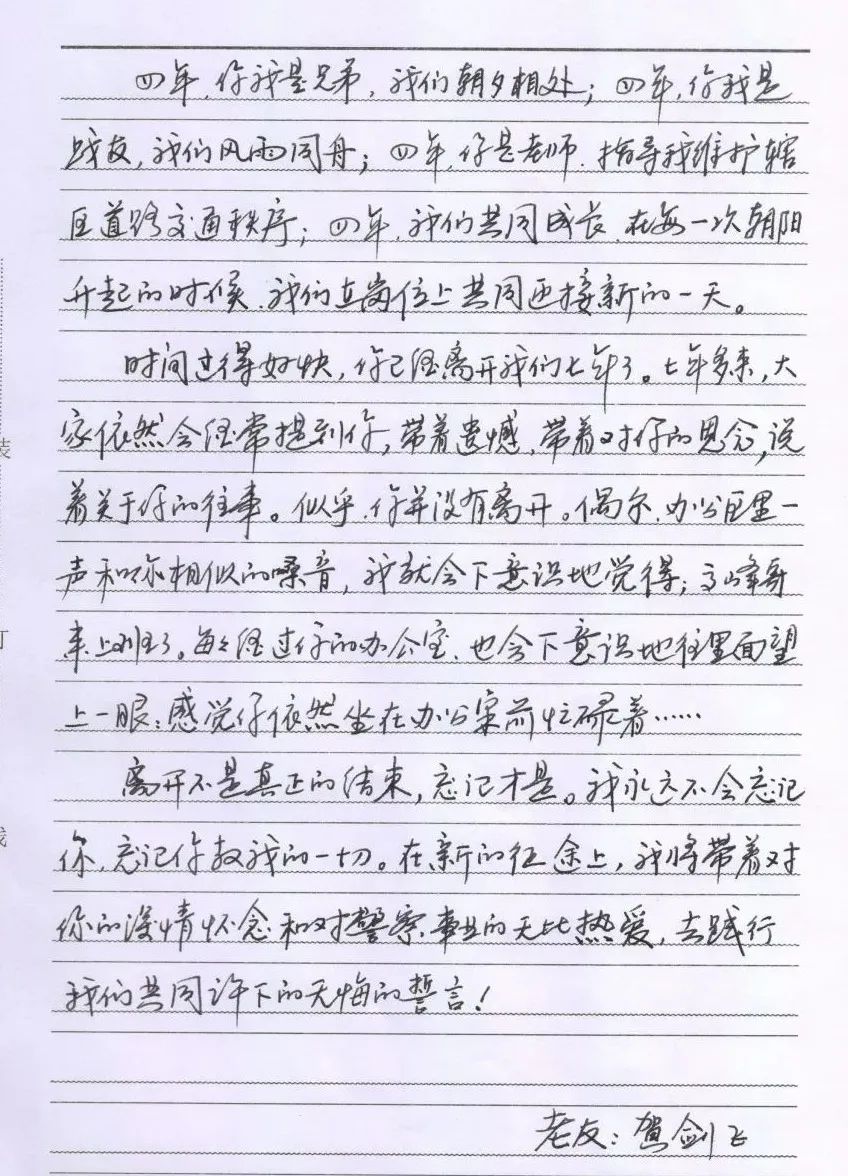 四年，你我是兄弟，我们朝夕相处；四年，你我是
战友，我们风雨同舟；四年，你是老师，指导我维护辖
区道路交通秩序；四年，我们共同成长，在每一次朝阳
升起的时候，我们在岗位上共同迎接新的一天。
时间过得好快，你已经离开我们七年了。七年多来，大
家依然会经常提到你，带着遗憾，带着对你的思念，说
着关于你的往事。似乎，你并没有离开。偶尔，办公区里一
声和你相似的嗓音，我就会下意识地觉得：高峰哥
来上班了。每每经过你的办公室，也会下意识地往里面望
上一眼：感觉你依然坐在办公案前忙碌着……
离开不是真正的结束，忘记才是。我永远不会忘记
你，忘记你教我的一切。在新的征途上，我将带着对
你的深情怀念和对警察事业的无比热爱，去践行
我们共同许下的无悔的誓言！
老友：贺剑飞
装
订
线